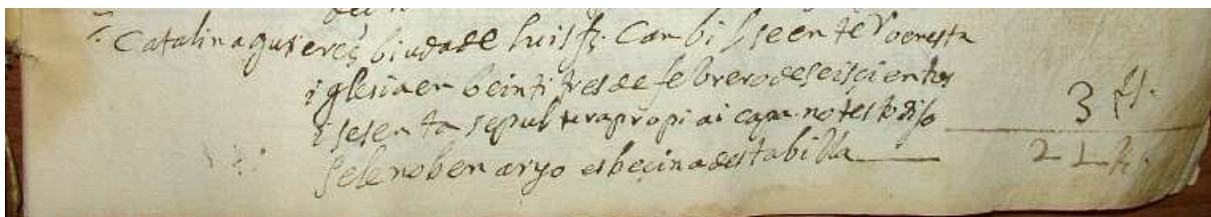 Catalina gutierez biuda de luis fz. Canbil se enterro en esta
iglesia en beinti tres de febrero de seiscientos
i sesenta sepultura propia i capa no testo diso
sele nobenaryo es becina desta billa
3 rs.
21